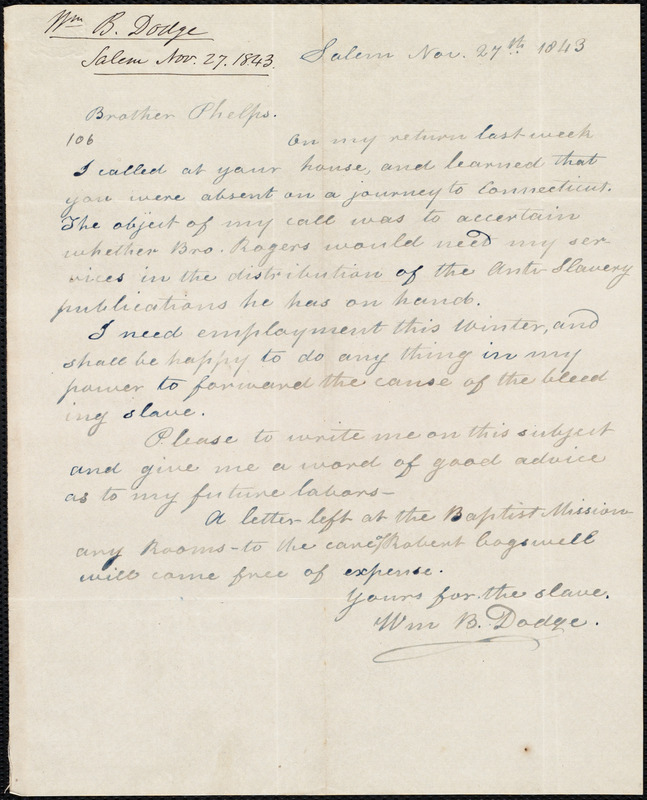 Wm B. Dodge
Salem Nov. 27. 1843.
Salem Nov. 27th 1843
Brother Phelps.
106
On my return last week
I called at your house, and learned that
you were absent on a journey to Connecticut.
The object of my call was to accertain
whether Bro. Rogers would need my ser-
vices in the distribution of the Anti-Slavery
publications he has on hand.
I need employment this Winter, and
shall be happy to do any thing in my
power to forward the cause of the bleed
ing slave.
Please to write me on this subject
and give me a word of good advice
as to my future labors-
A letter left at the Baptist Mission
ary Rooms-to the care of Robert Cogswell
will come free of expense.
Yours for the slave.
Wm B. Dodge.